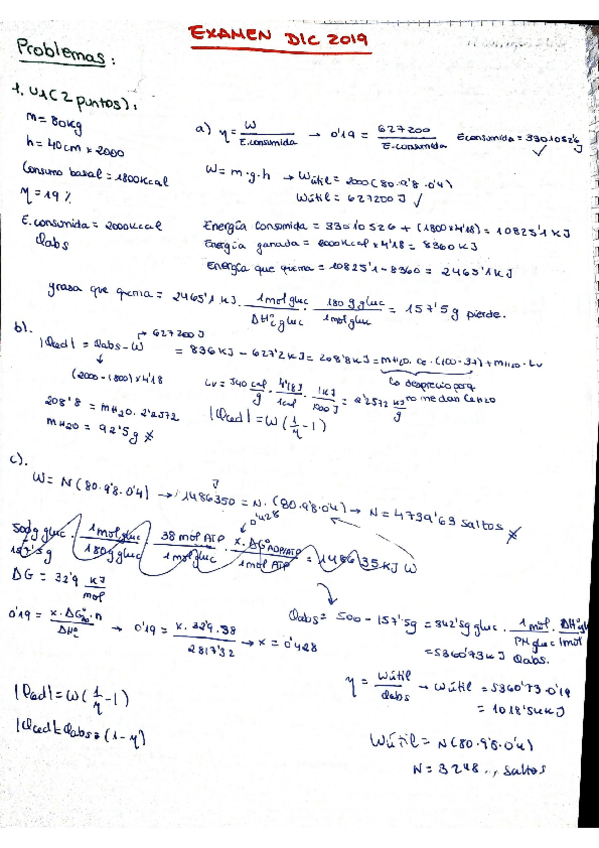 EXAMEN DIC 2019
Problemas:
1. U1 (2 puntos):
m = 80Kg
h = 40cm × 2000
Consumo basal = 1800Kcal
η = 19 %
E.consumida = 2000Kcal
Qabs
a) η = W / E.consumida → 0'19 = 627200 / E.consumida E consumida = 3301052'6 J ✓
W = m·g·h → Wútil = 2000(80·9'8·0'4)
Wútil = 627200 J ✓
Energía Consomida = 3301052'6 + (1800×4'18) = 10825'1 KJ
Energía ganada = 2000Kcal × 4'18 = 8360 KJ
Energía que quema = 10825'1 - 8360 = 2465'1 KJ
grasa que quema = 2465'1 KJ · 1mol gluc / ΔHºc gluc · 180 g gluc / 1mol gluc = 157'5g pierde.
b).
→ 627200J
|Qced| = Qabs - W = 836 KJ - 627'2 KJ = 208'8 KJ = mH2O · Ce · (100-37) + mH2O · Lv
(2000-1800) × 4'18
Lv = 540 cal/g · 4'18J/1cal · 1KJ/1000J = 2'2572 KJ/g
Lo desprecio porq no me dan Ce H2O
208'8 = mH2O · 2'2572
mH2O = 92'5g
|Qced| = W(1/η - 1)
c).
W = N(80·9'8·0'4) → 1486350 = N·(80·9'8·0'4) → N = 4739'63 saltos
0'428
500g gluc · 1mol gluc / 180g gluc · 38 mol ATP / 1mol gluc · x·ΔGº ADP/ATP / 1mol ATP = 1486'35KJ W
157'5g
ΔG = 32'9 KJ/mol
0'19 = x·ΔGº·n / ΔHºc → 0'19 = x·32'9·38 / 2817'32 → x = 0'428
Qabs = 500 - 157'5g = 342'5g gluc · 1mol / PM gluc · ΔHº gl / 1mol
= 5360'73 KJ Qabs.
η = Wútil / Qabs → Wútil = 5360'73·0'19
= 1018'54 KJ
|Qced| = W(1/η - 1)
|Qced| = Qabs = (1-η)
Wútil = N(80·9'8·0'4)
N = 3248.., saltos